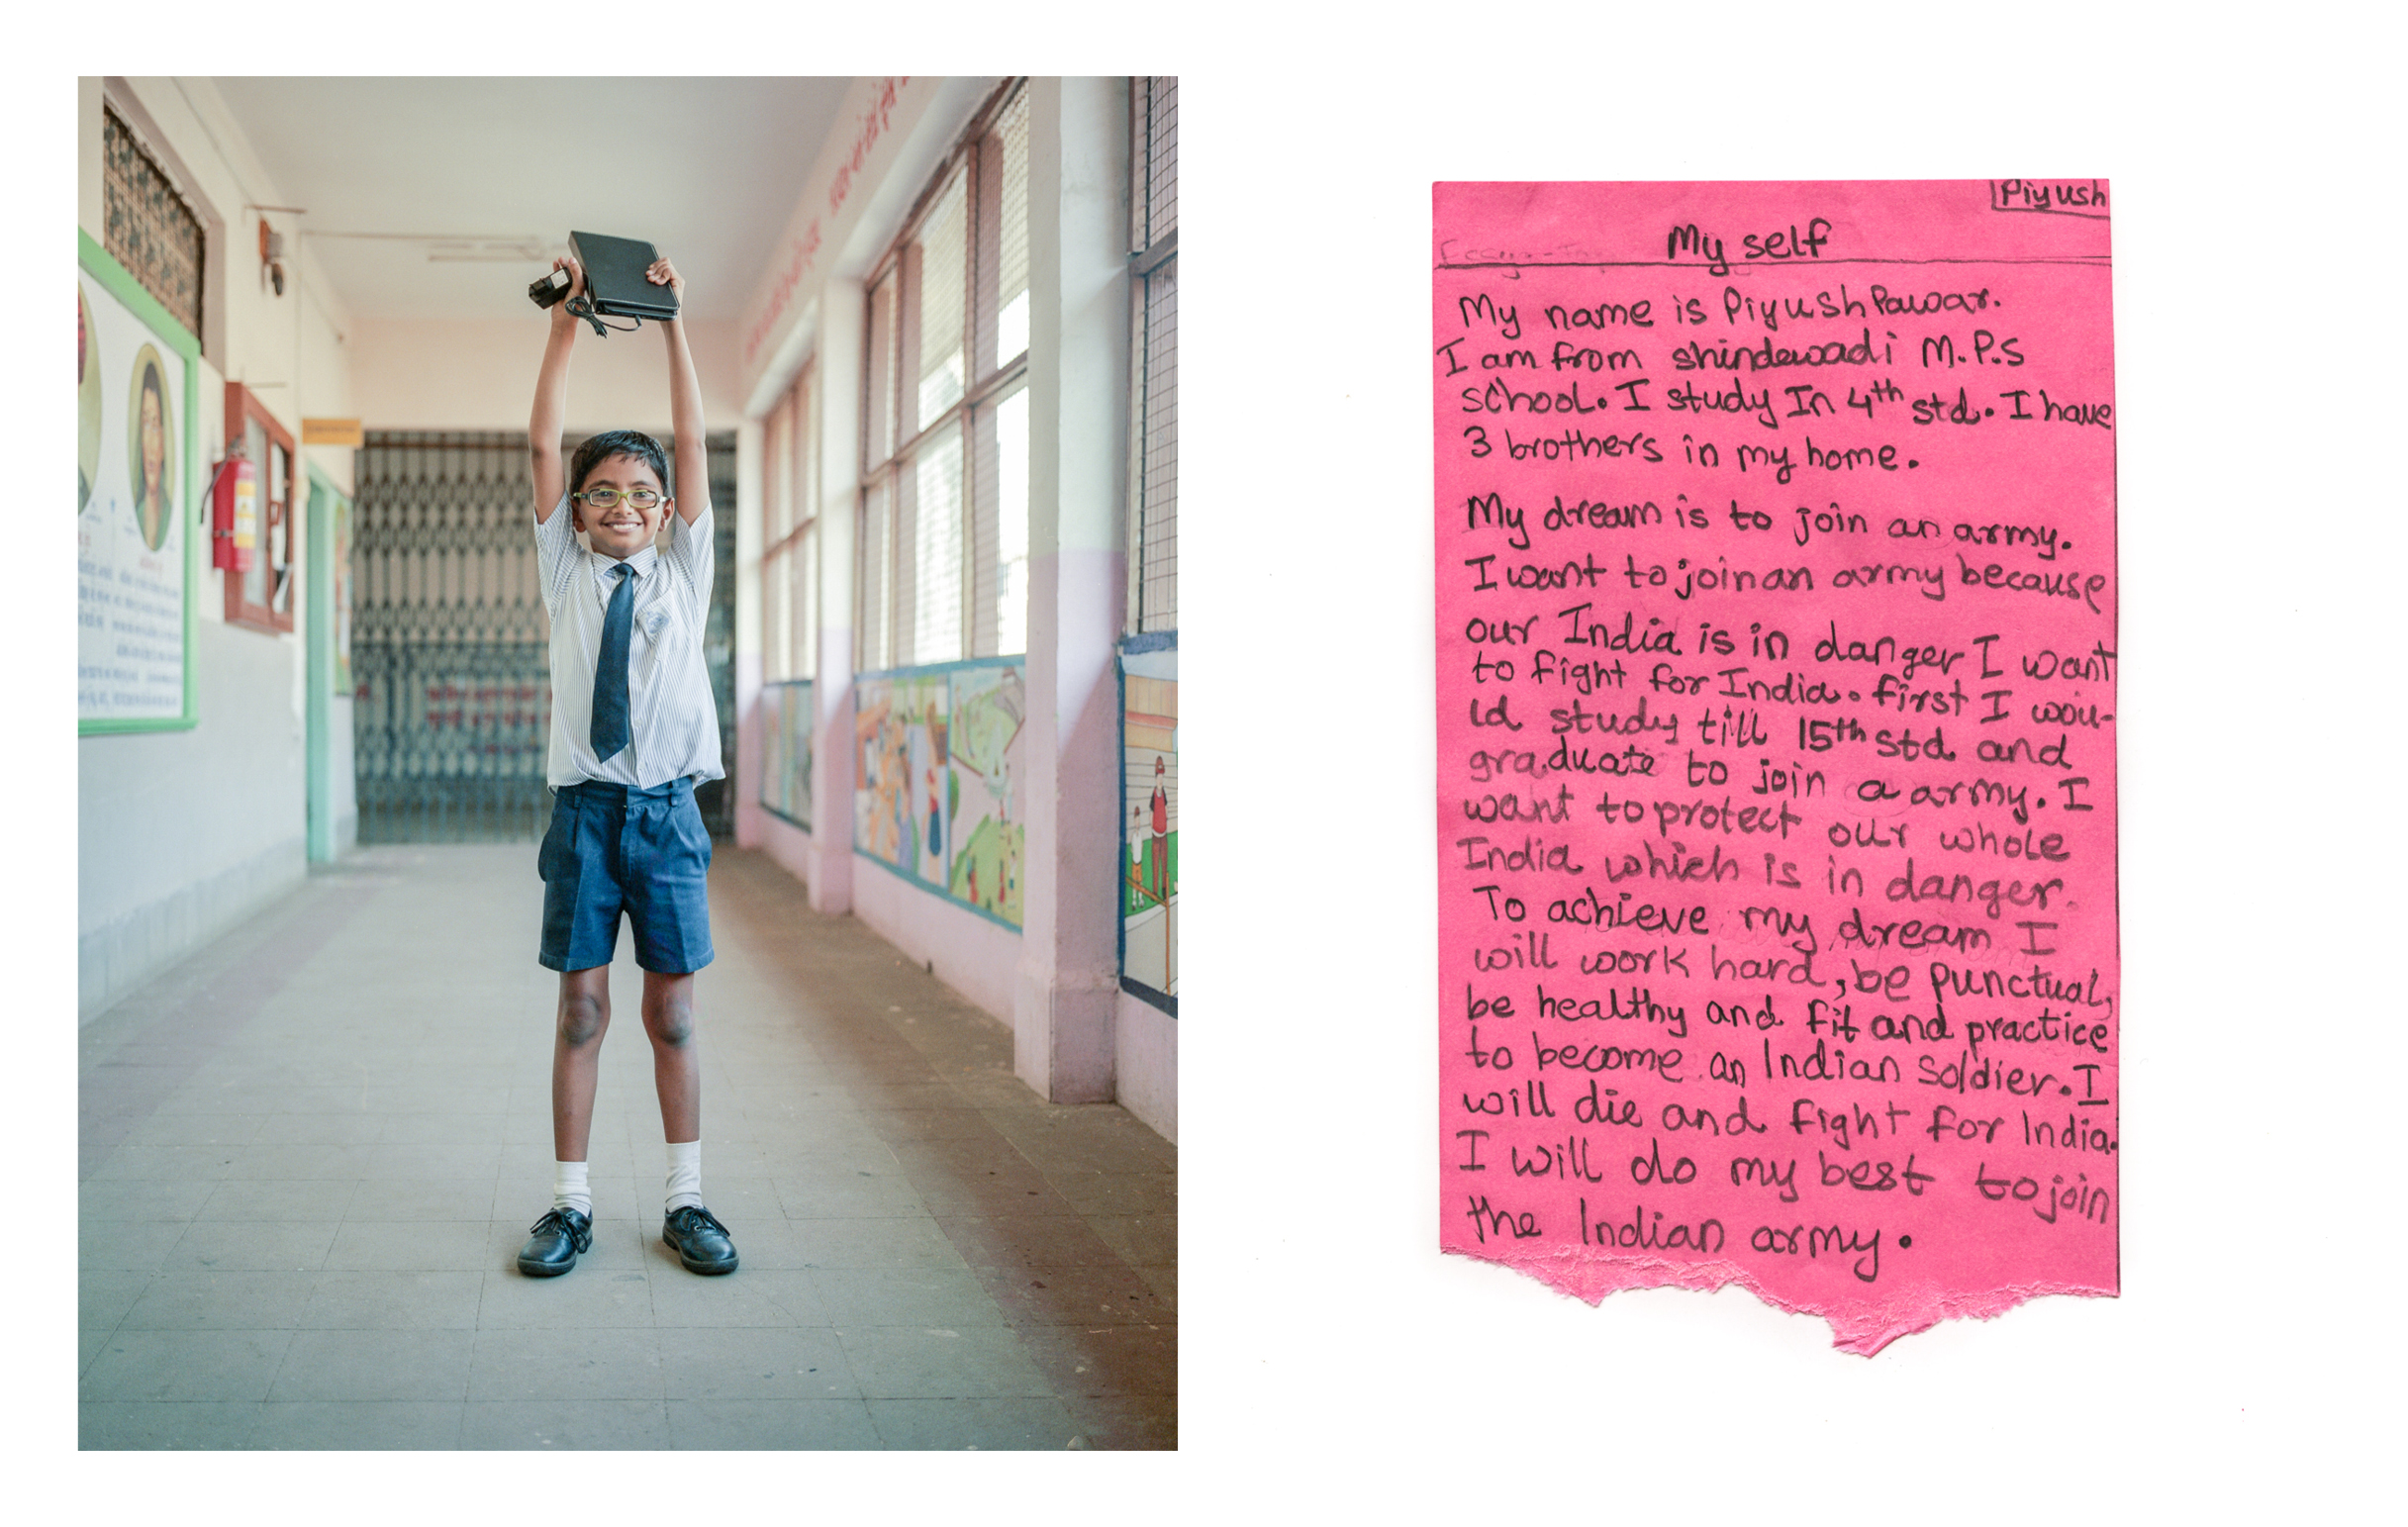 Piyush
My self
My name is Piyush Pawar.
I am from shindewadi M.P.S
school. I study In 4th std. I have
3 brothers in my home.
My dream is to join an army.
I want to join an army because
our India is in danger I want
to fight for India. first I wou-
ld study till 15th std and
graduate to join a army. I
want to protect our whole
India which is in danger.
To achieve my dream I
will work hard, be punctual,
be healthy and fit and practice
to become an Indian soldier. I
will die and fight for India.
I will do my best to join
the Indian army.